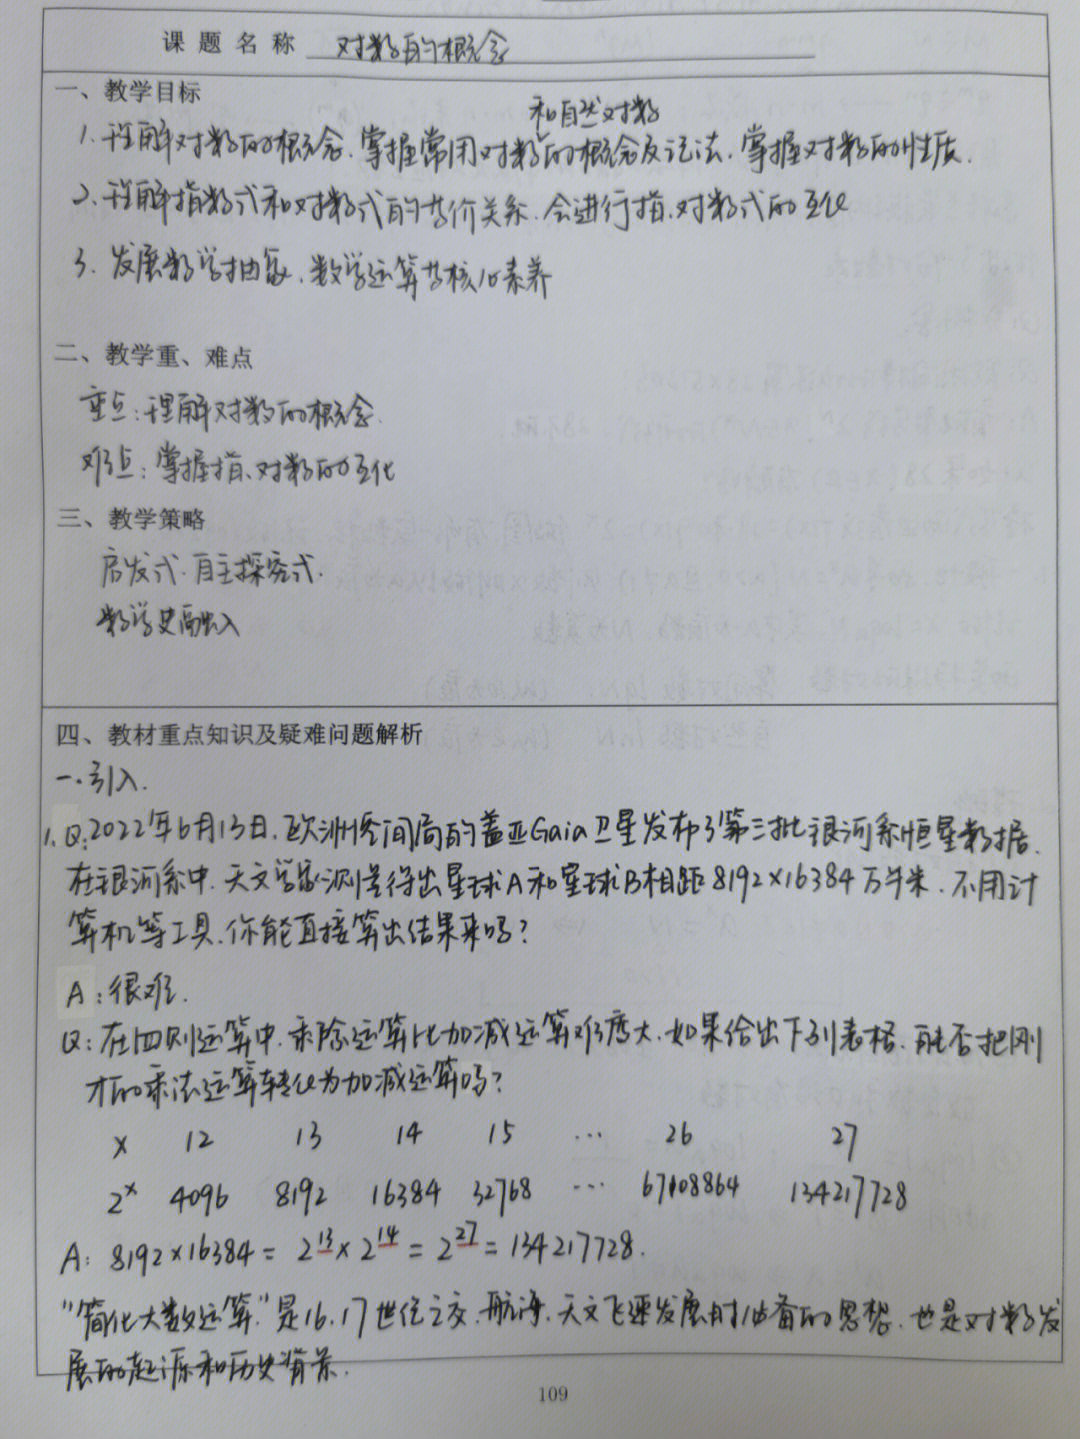 课题名称 对数的概念
一、教学目标
和自然对数
1. 理解对数的概念、掌握常用对数的概念及记法、掌握对数的性质.
2. 理解指数式和对数式的等价关系、会进行指、对数式的互化
3. 发展数学抽象、数学运算等核心素养
二、教学重、难点
重点:理解对数的概念.
难点:掌握指、对数的互化
三、教学策略
启发式、自主探究式.
数学史融入
四、教材重点知识及疑难问题解析
一.引入.
1. Q:2022年6月13日,欧洲空间局的盖亚Gaia卫星发布了第三批银河系恒星数据.
在银河系中,天文学家测算得出星球A和星球B相距8192×16384万千米,不用计
算机等工具,你能直接算出结果来吗?
A:很难.
Q:在四则运算中,乘除运算比加减运算难度大,如果给出下列表格,能否把刚
才的乘法运算转化为加减运算吗?
x 12 13 14 15 … 26 27
2ˣ 4096 8192 16384 32768 … 67108864 134217728
A: 8192×16384 = 2¹³×2¹⁴ = 2²⁷ = 134217728.
"简化大数运算"是16、17世纪之交,航海、天文飞速发展时必备的思想,也是对数发
展的起源和历史背景.
109